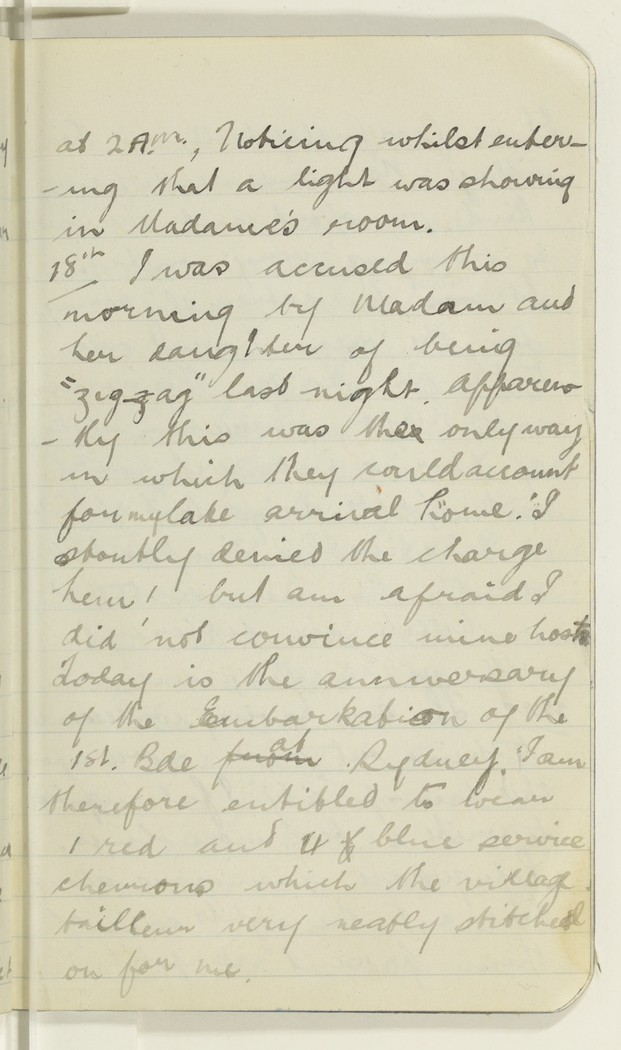 at 2 A.m., Noticing whilst enter-
-ing that a light was showing
in Madame's room.
18th I was accused this
morning by Madam and
her daughter of being
"zig-zag" last night. apparen
-tly this was the only way
in which they could account
for my late arrival home. I
stoutly denied the charge
hem! but am afraid I
did not convince mine hosts
Today is the anniversary
of the Embarkation of the
1st. Bde from at Sydney. I am
therefore entitled to wear
1 red and 4 blue service
chevrons which the village
tailleur very neatly stitched
on for me.